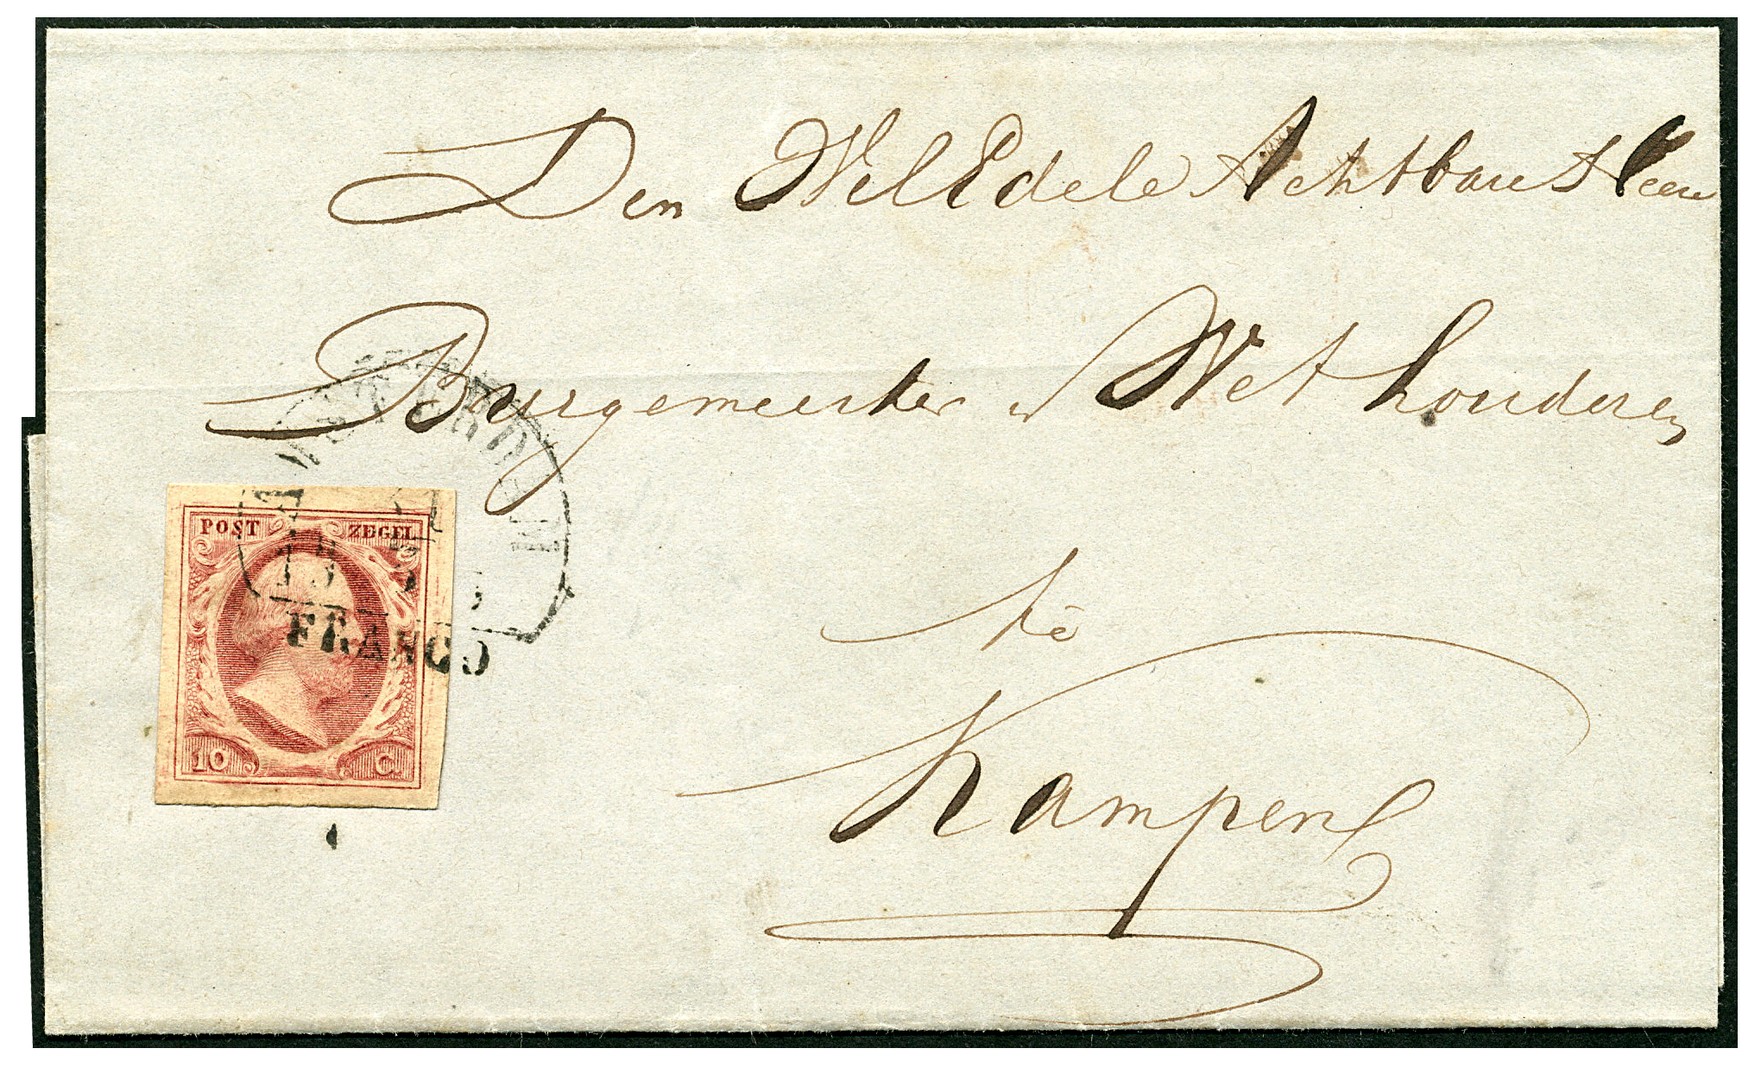 Den WelEdele Achtbare Heeren
Burgemeester en Wethouderen
te
Kampen
POST ZEGEL
FRANCO
10 C.